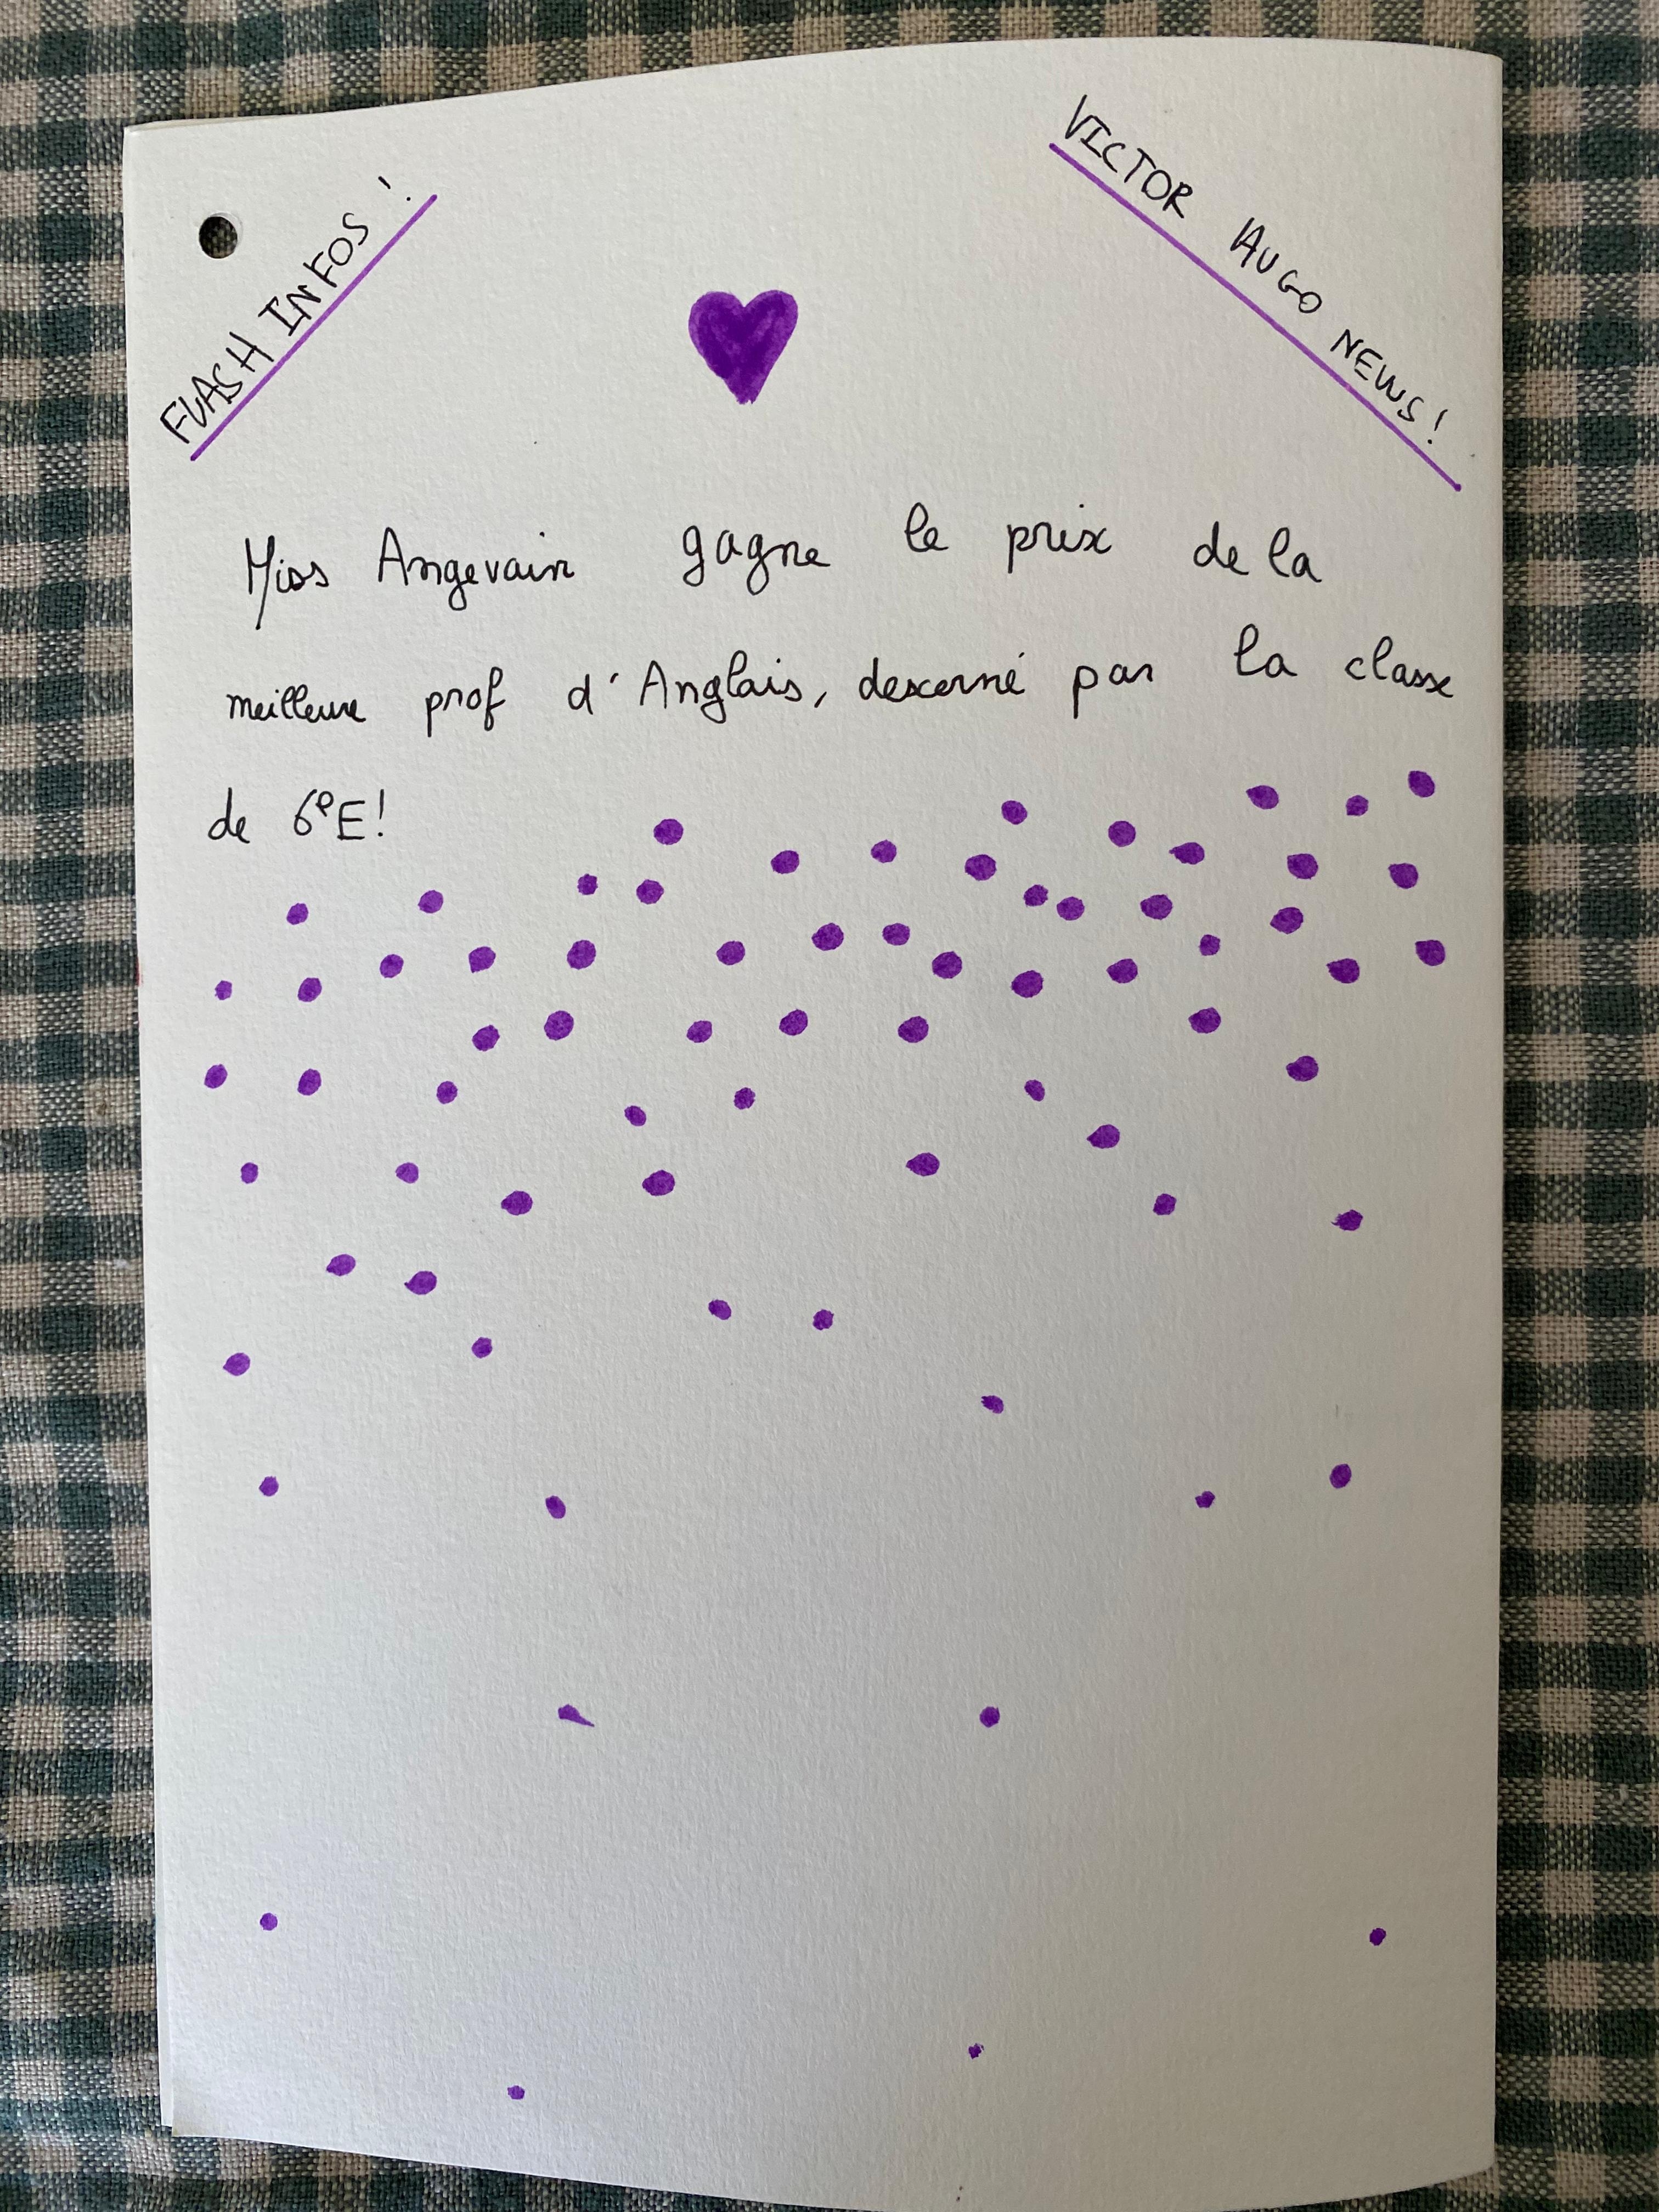 FLASH INFOS !
VICTOR HUGO NEWS !
Miss Angevain gagne le prix de la
meilleure prof d'Anglais, descerné par la classe
de 6eE!